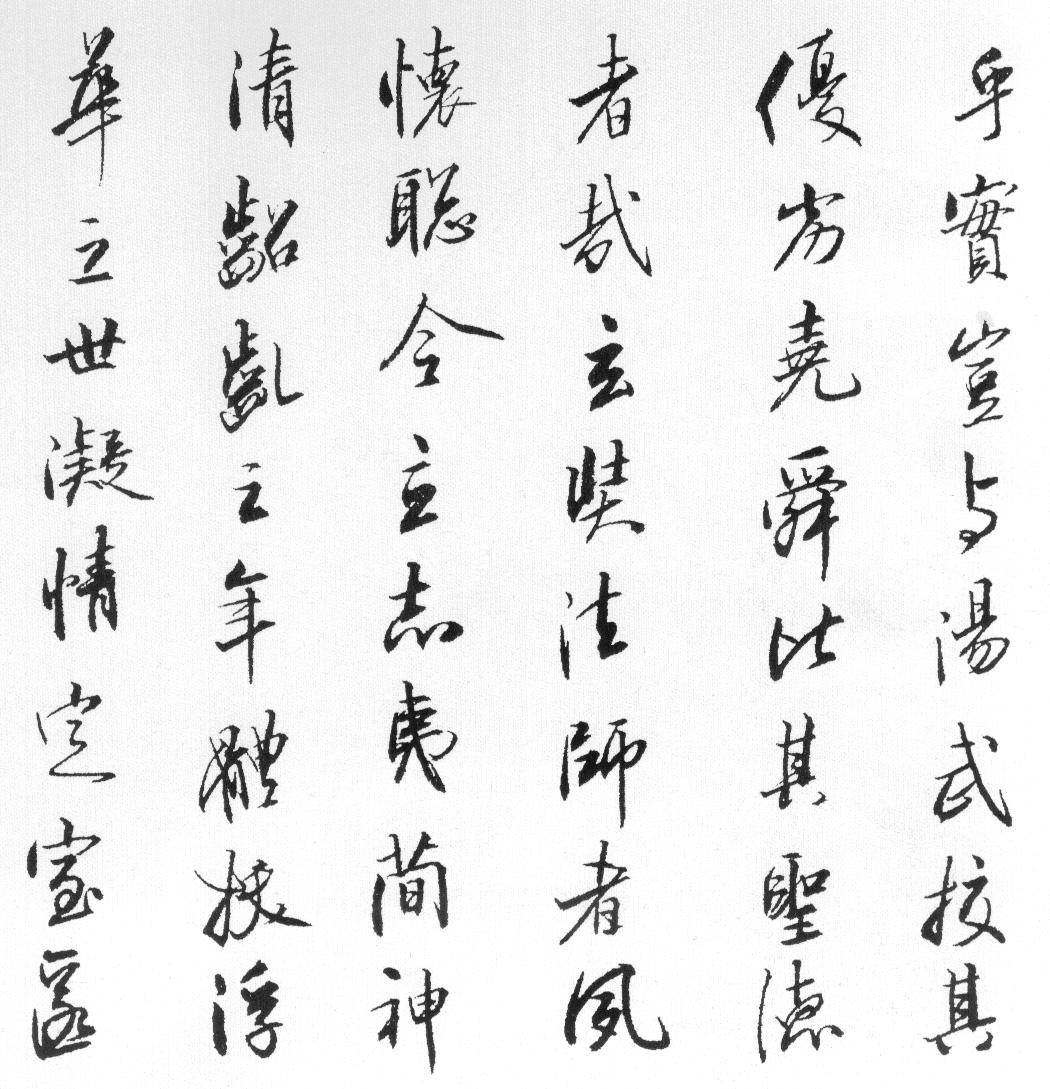 乎實豈与湯武挍其
優劣堯舜比其聖德
者哉玄奘法師者夙
懷聡令立志夷簡神
清齠齓之年體拔浮
華之世凝情定室匿